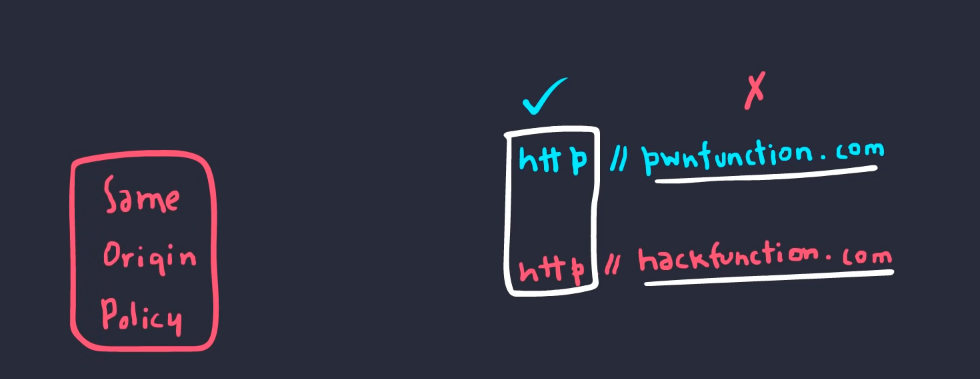 Same
Origin
Policy
✓ ✗
http // pwnfunction.com
http // hackfunction.com